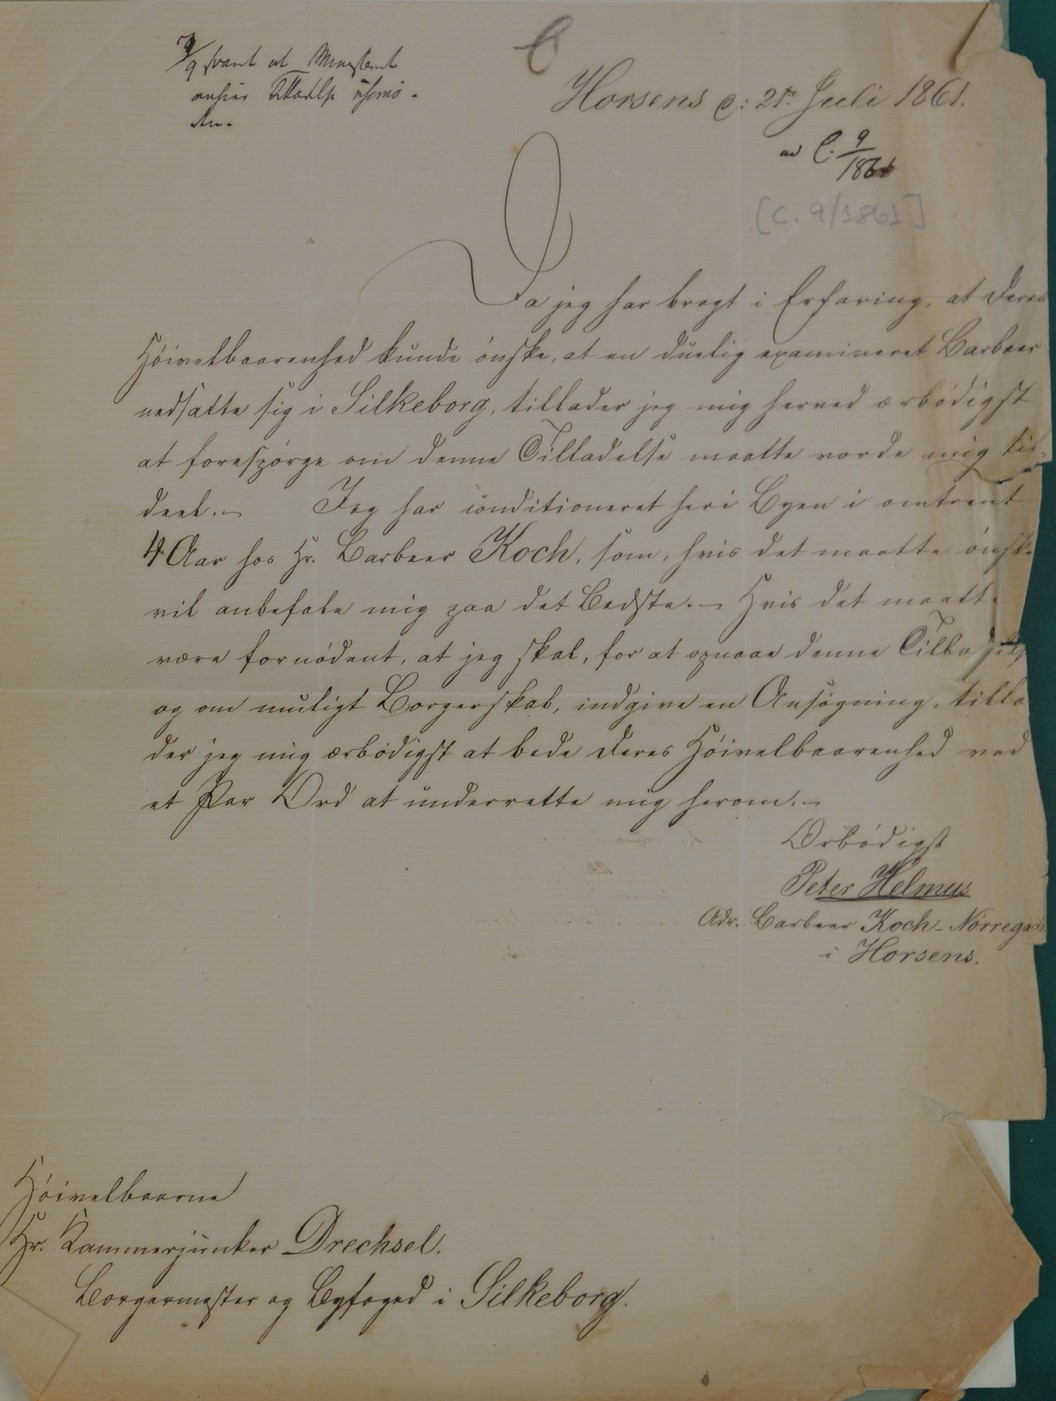 7/9 svaret at Ministeriet
C
Horsens d: 21de Juli 1861.
ad C. 9/1861
[C. 9/1861]
Da jeg har bragt i Erfaring, at Deres
Høivelbaarenhed kunde ønske, at en duelig examineret Barbeer
nedsatte sig i Silkeborg, tillader jeg mig herved ærbödigst
at forespørge om denne Tilladelse maatte vorde mig til-
deel.- Jeg har conditioneret her i Byen i omtrent
4 Aar hos Hr. Barbeer Koch, som, hvis det maatte ønskes
vil anbefale mig paa det Bedste.- Hvis det maatte
være fornødent, at jeg skal, for at opnaae denne Tilladelse
og om muligt Borgerskab, indgive en Ansøgning, tilla
der jeg mig ærbödigst at bede Deres Høivelbaarenhed ved
et Par Ord at underrette mig herom.-
Ærbödigst
Peter Helmus
Adr. Barbeer Koch - Nørregade
i Horsens.
Høivelbaarne
Hr. Kammerjunker Drechsel.
Borgermester og Byfoged i Silkeborg.